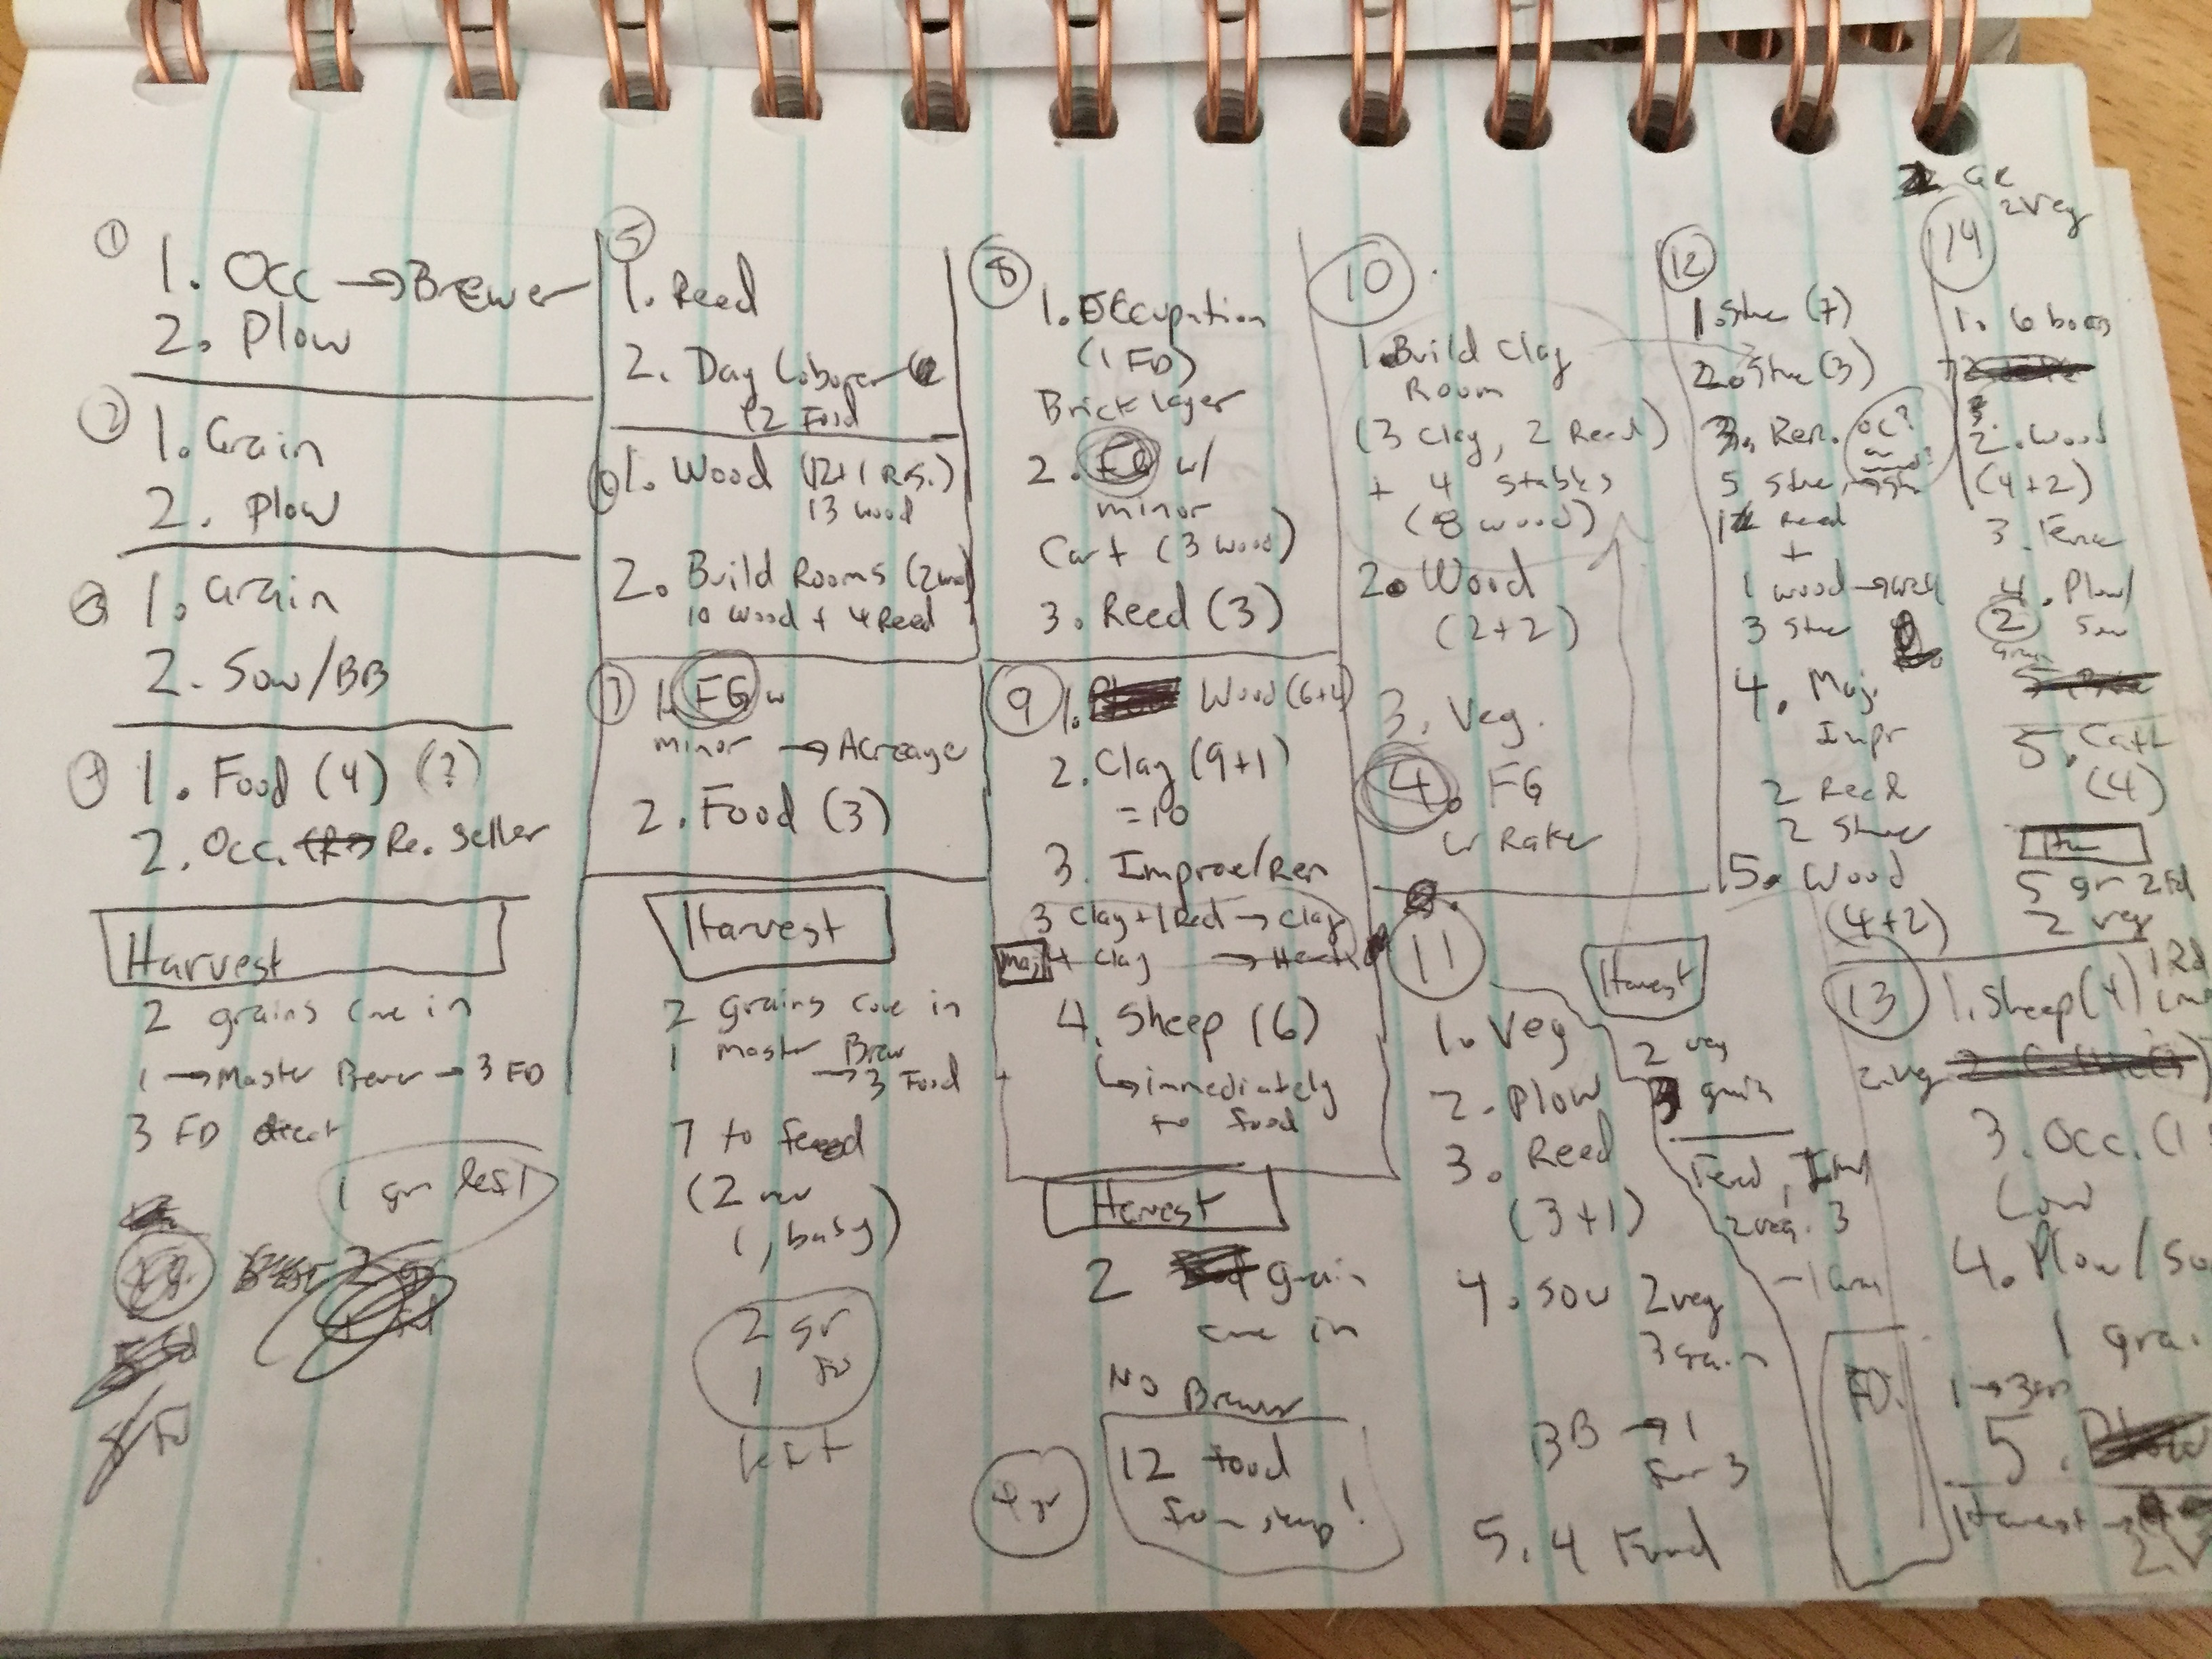 ①
1. Occ → Brewer
2. Plow
②
1. Grain
2. Plow
③
1. Grain
2. Sow/BB
④
1. Food (4) (?)
2. Occ. Re. Seller
Harvest
2 grains come in
1 → Master Brewer → 3 FD
3 FD
1 gr left
⑤
1. Reed
2. Day Laborer
2 Food
⑥
1. Wood (12+1 Res.)
13 wood
2. Build Rooms (2
10 wood + 4 Reed
⑦
1. FG w
minor → Acreage
2. Food (3)
Harvest
2 grains come in
1 master Brew
→ 3 Food
7 to feed
(2 new
1, baby)
2 gr
1 FD
left
⑧
1. Occupation
(1 FD)
Bricklayer
2. FG w/
minor
Cart (3 wood)
3. Reed (3)
⑨
1. Wood (6+4)
2. Clay (9+1)
= 10
3. Improve/Ren
3 Clay + 1 Reed → Clay
Maj 4 clay → Hearth
4. Sheep (6)
↳ immediately
to food
Harvest
2 grain
come in
No Brewer
12 food
from sheep!
4 gr
⑩
1. Build Clay
Room
(3 Clay, 2 Reed)
+ 4 stables
(8 wood)
2. Wood
(2+2)
3. Veg.
4. FG
w Rake
⑪
1. Veg
2. Plow
3. Reed
(3+1)
4. Sow 2 veg
3 grain
BB → 1
for 3
5. 4 Food
Harvest
2 veg
3 grain
Feed,
2 veg. 3
FD.
⑫
1. Stne (7)
2. Stne (3)
3. Ren. oc?
5 Stne
1 Reed
+
1 wood → well
3 Stne
4. Maj.
Impr
2 Reed
2 Stne
5. Wood
(4+2)
⑬
1. Sheep (4)
2. veg
3. Occ. (1
4. Plow/So
1 gra.
1 → 3
5.
Harvest →
GR
2 Veg
⑭
1. 6 boars
2. Wood
(4+2)
3. Fence
4. Plow/
Sow
2
Grain
5. Catt
(4)
5 gr 2 Fd
2 veg